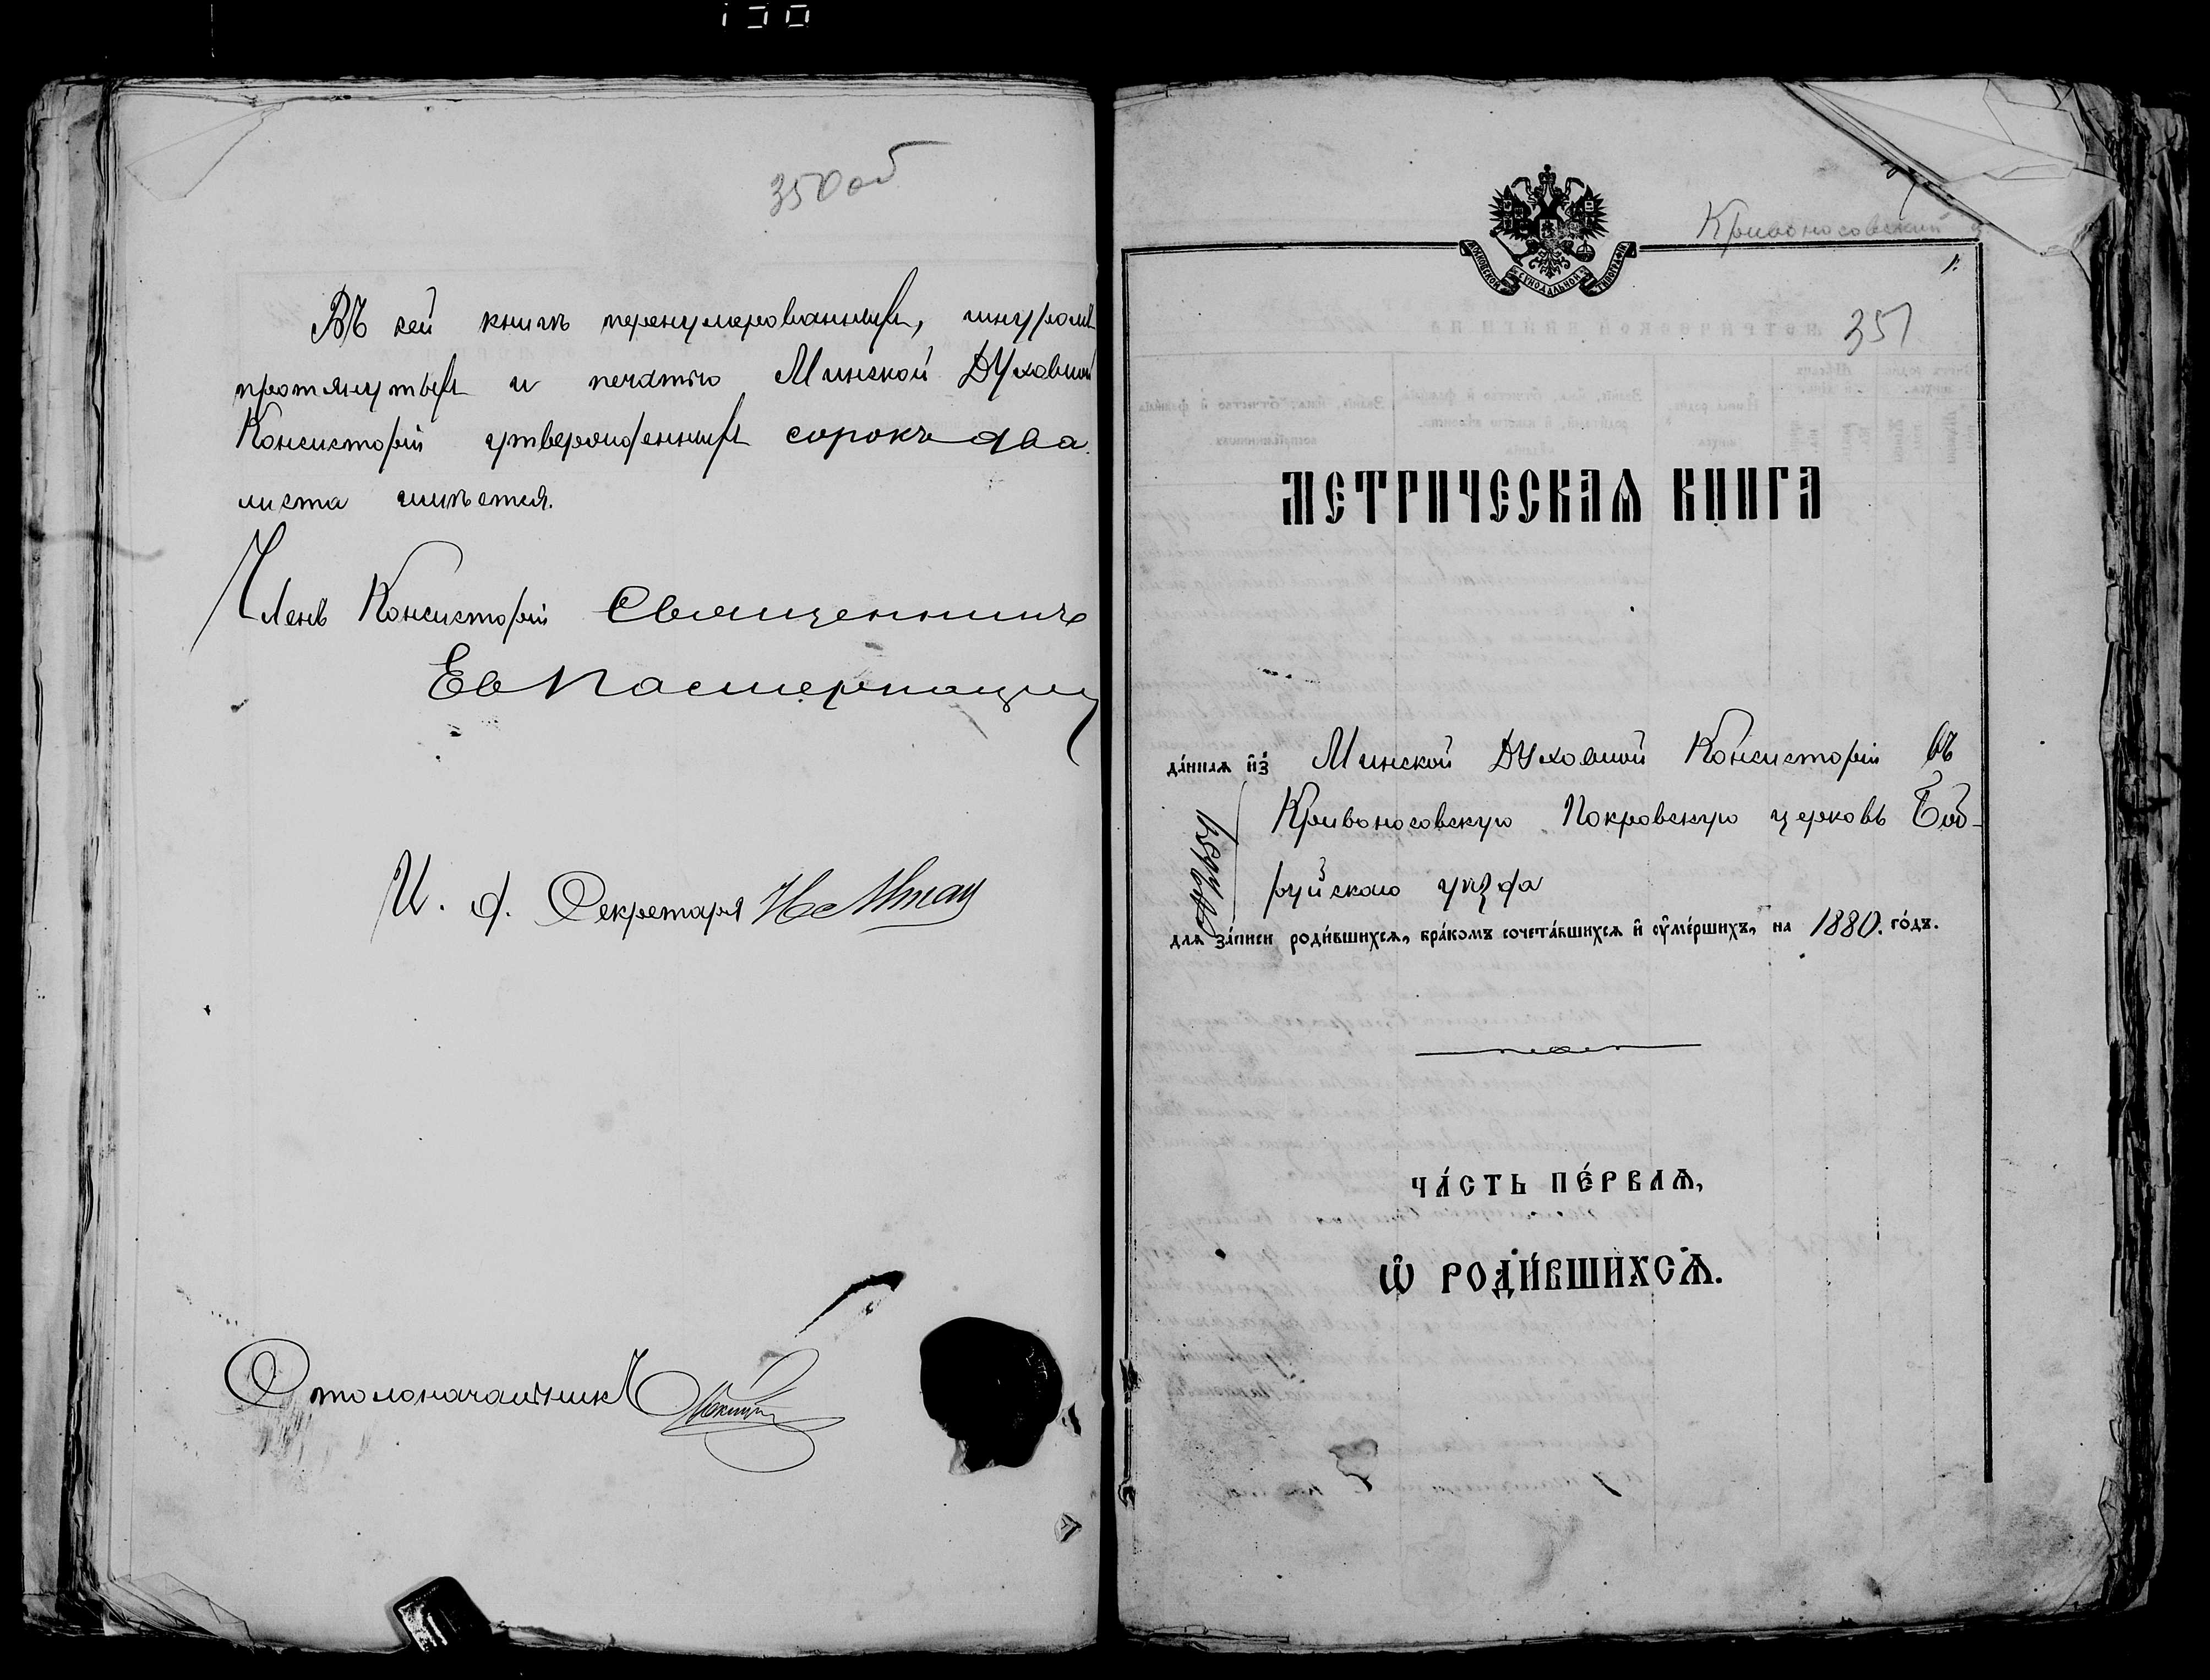 350 об
Въ сей книгѣ перенумерованныхъ, шнуромъ
протянутыхъ и печатью Минской Духовной
Консисторіи утвержденныхъ сорокъ два
листа имѣется.
Членъ Консисторіи Священникъ
Ев
И. д. Секретаря
Столоначальникъ
Кривоносовский
МОСКОВСКОЙ СѴНОДАЛЬНОЙ ТИПОГРАФІИ
1.
351
МЕТРИЧЕСКАѦ КНИГА
да́ннаѧ и҆з̾ Минской Духовной Консисторіи въ
Кривоносовскую Покровскую церковь Боб-
руйскаго уѣзда
для за́писи роди́вшихсѧ, бра́комъ сочета́вшихсѧ и҆ ᲂу҆ме́ршихъ, на 1880. го́дъ.
ЧА́СТЬ ПЕ́РВАѦ,
Ѽ РОДИ́ВШИХСѦ.